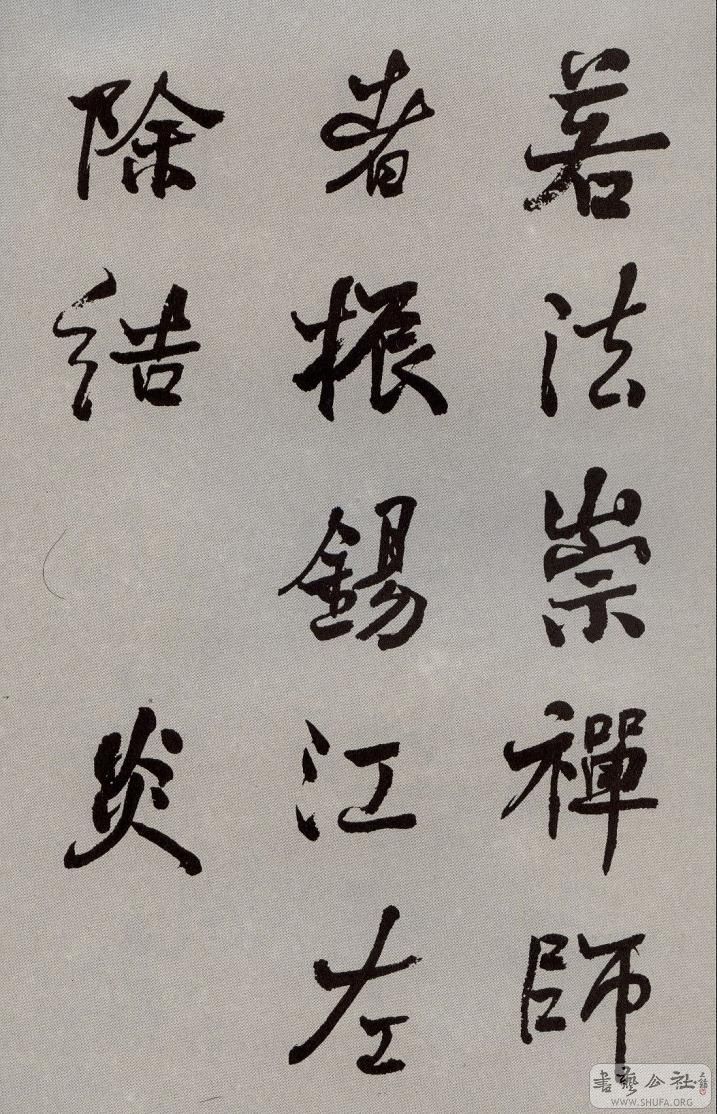 若法崇禪師
者振錫江左
除結 炎
書藝公社
WWW.SHUFA.ORG